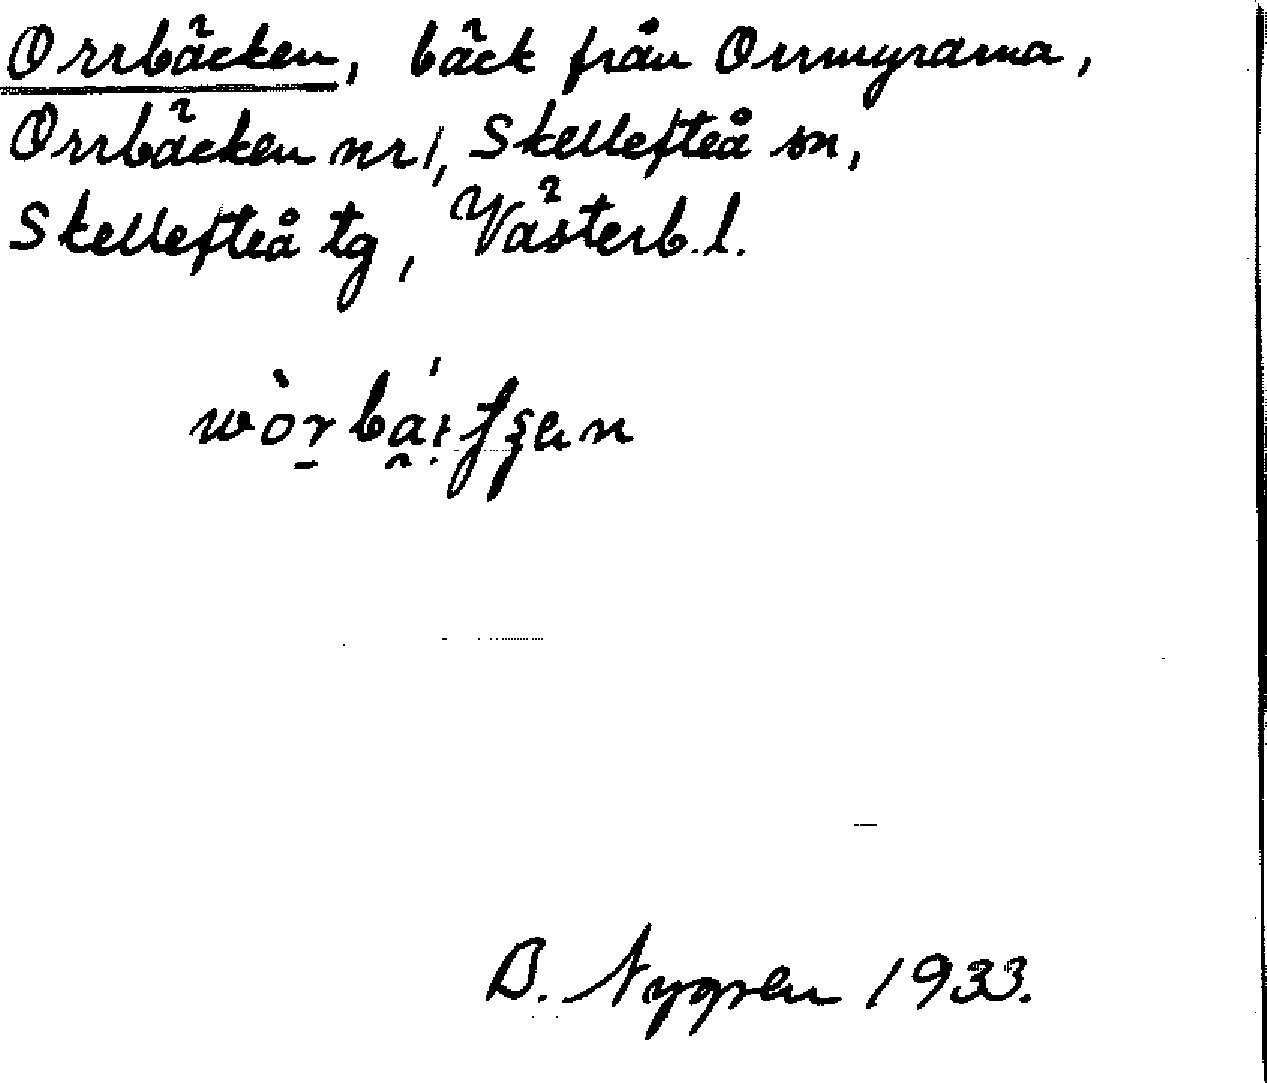 Orrbäcken, bäck från Orrmyrarna,
Orrbäcken nr 1, Skellefteå sn,
Skellefteå tg, Västerb. l.
B. Nygren 1933.